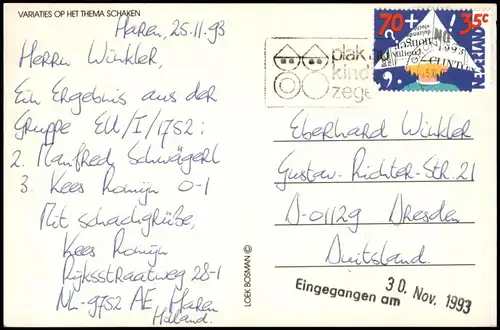 VARIATIES OP HET THEMA SCHAKEN
Haren, 25.11.93
Herrn Winkler,
Ein Ergebnis aus der
Gruppe EU/I/1752:
2. Manfred Schwägerl
3. Kees Romijn 0-1
Mit schachgrüße,
Kees Romijn
Rijksstraatweg 28-1
NL-9752 AE Haren
Holland.
LOEK BOSMAN ©
plak
kinder
zegels
70+ 35c
1993
Eberhard Winkler
Gustav-Richter-Str. 21
D-01129 Dresden
Duitsland.
Eingegangen am 30. Nov. 1993